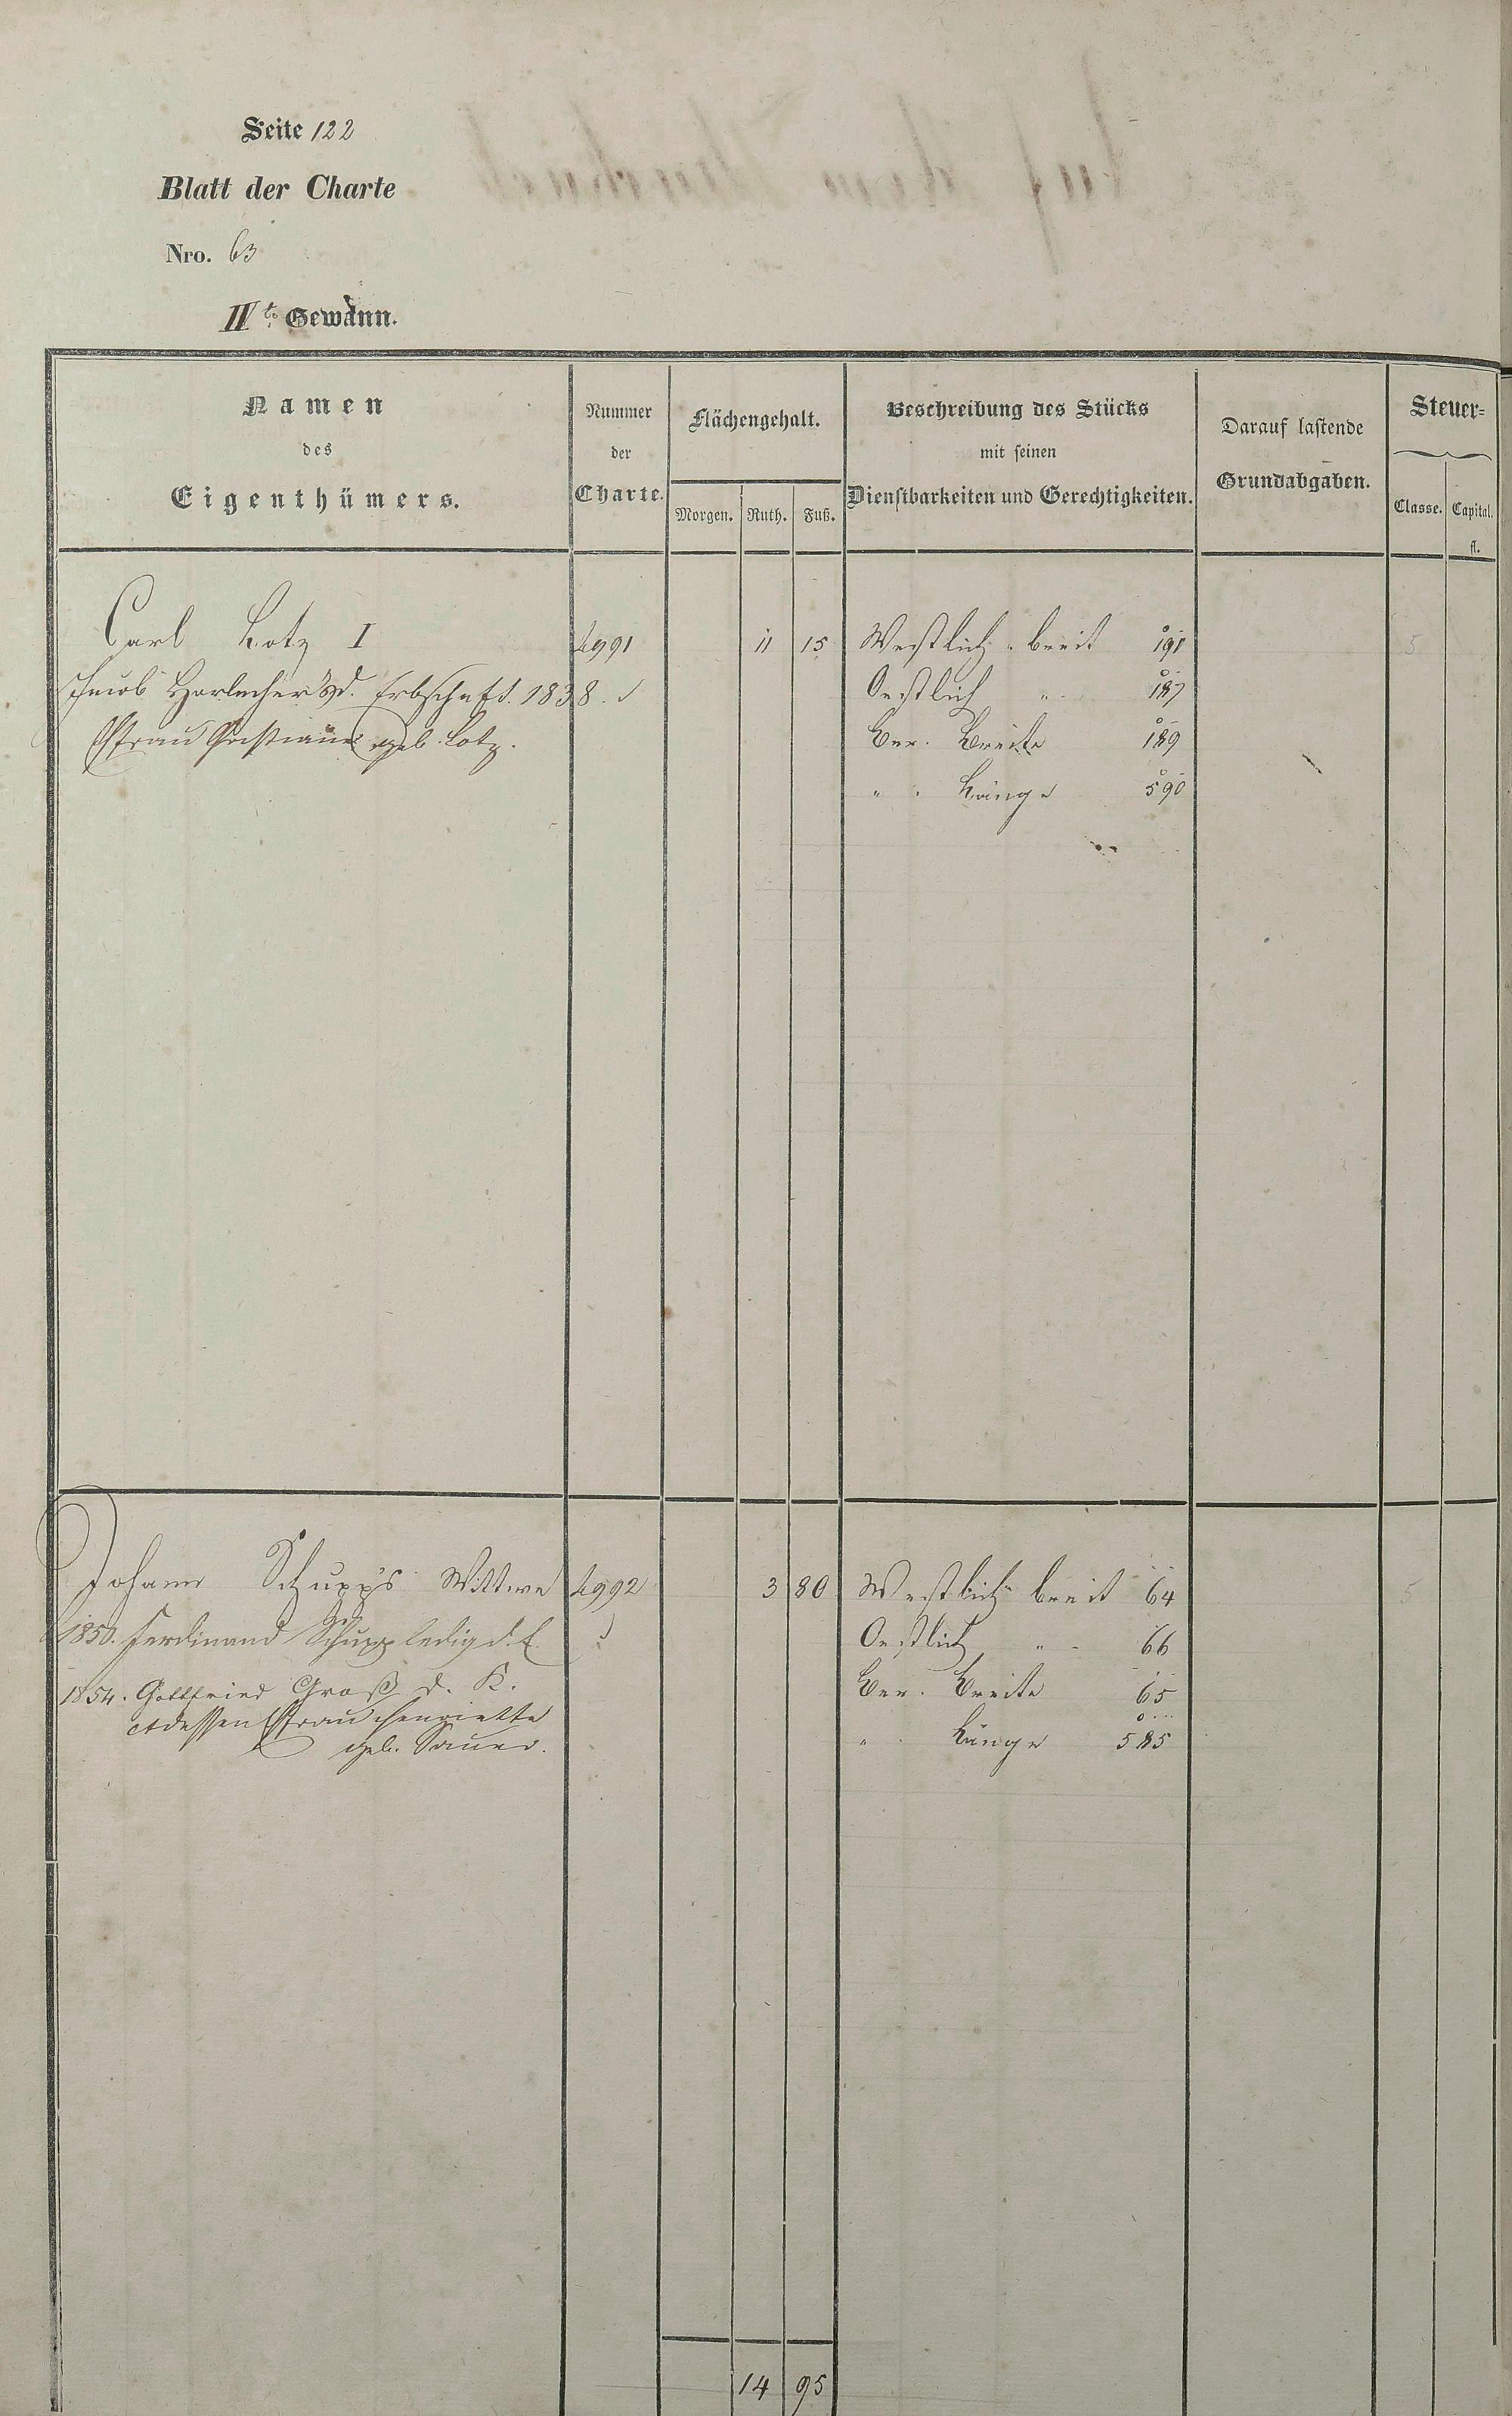 Seite 122
Blatt der Charte
Nro. 63
IIte Gewann.
Namen
des
Eigenthümers.
Nummer
der
Charte.
Flächengehalt.
Morgen. Ruth. Fuß.
Beschreibung des Stücks
mit seinen
Dienstbarkeiten und Gerechtigkeiten.
Darauf lastende
Grundabgaben.
Steuer-
Classe. Capital.
fl.
Carl Lotz I 4991 11 15 Westlich breit 191 5
Jacob Horlacher d. Erbschaft. 1838.
Oestlich " 187
Efrau geb. Lotz.
Ber. Breite 189
" " Länge 590
Johann Schupp's Wittwe 4992 3 80 Westlich breit 64 5
1850. Ferdinand Schupp ledig d. E.
Oestlich " 66
1854. Gottfried Groß d. K.
Ber. Breite 65
dessen Efrau Henriette
" Länge 585
geb. Sauer.
14 95